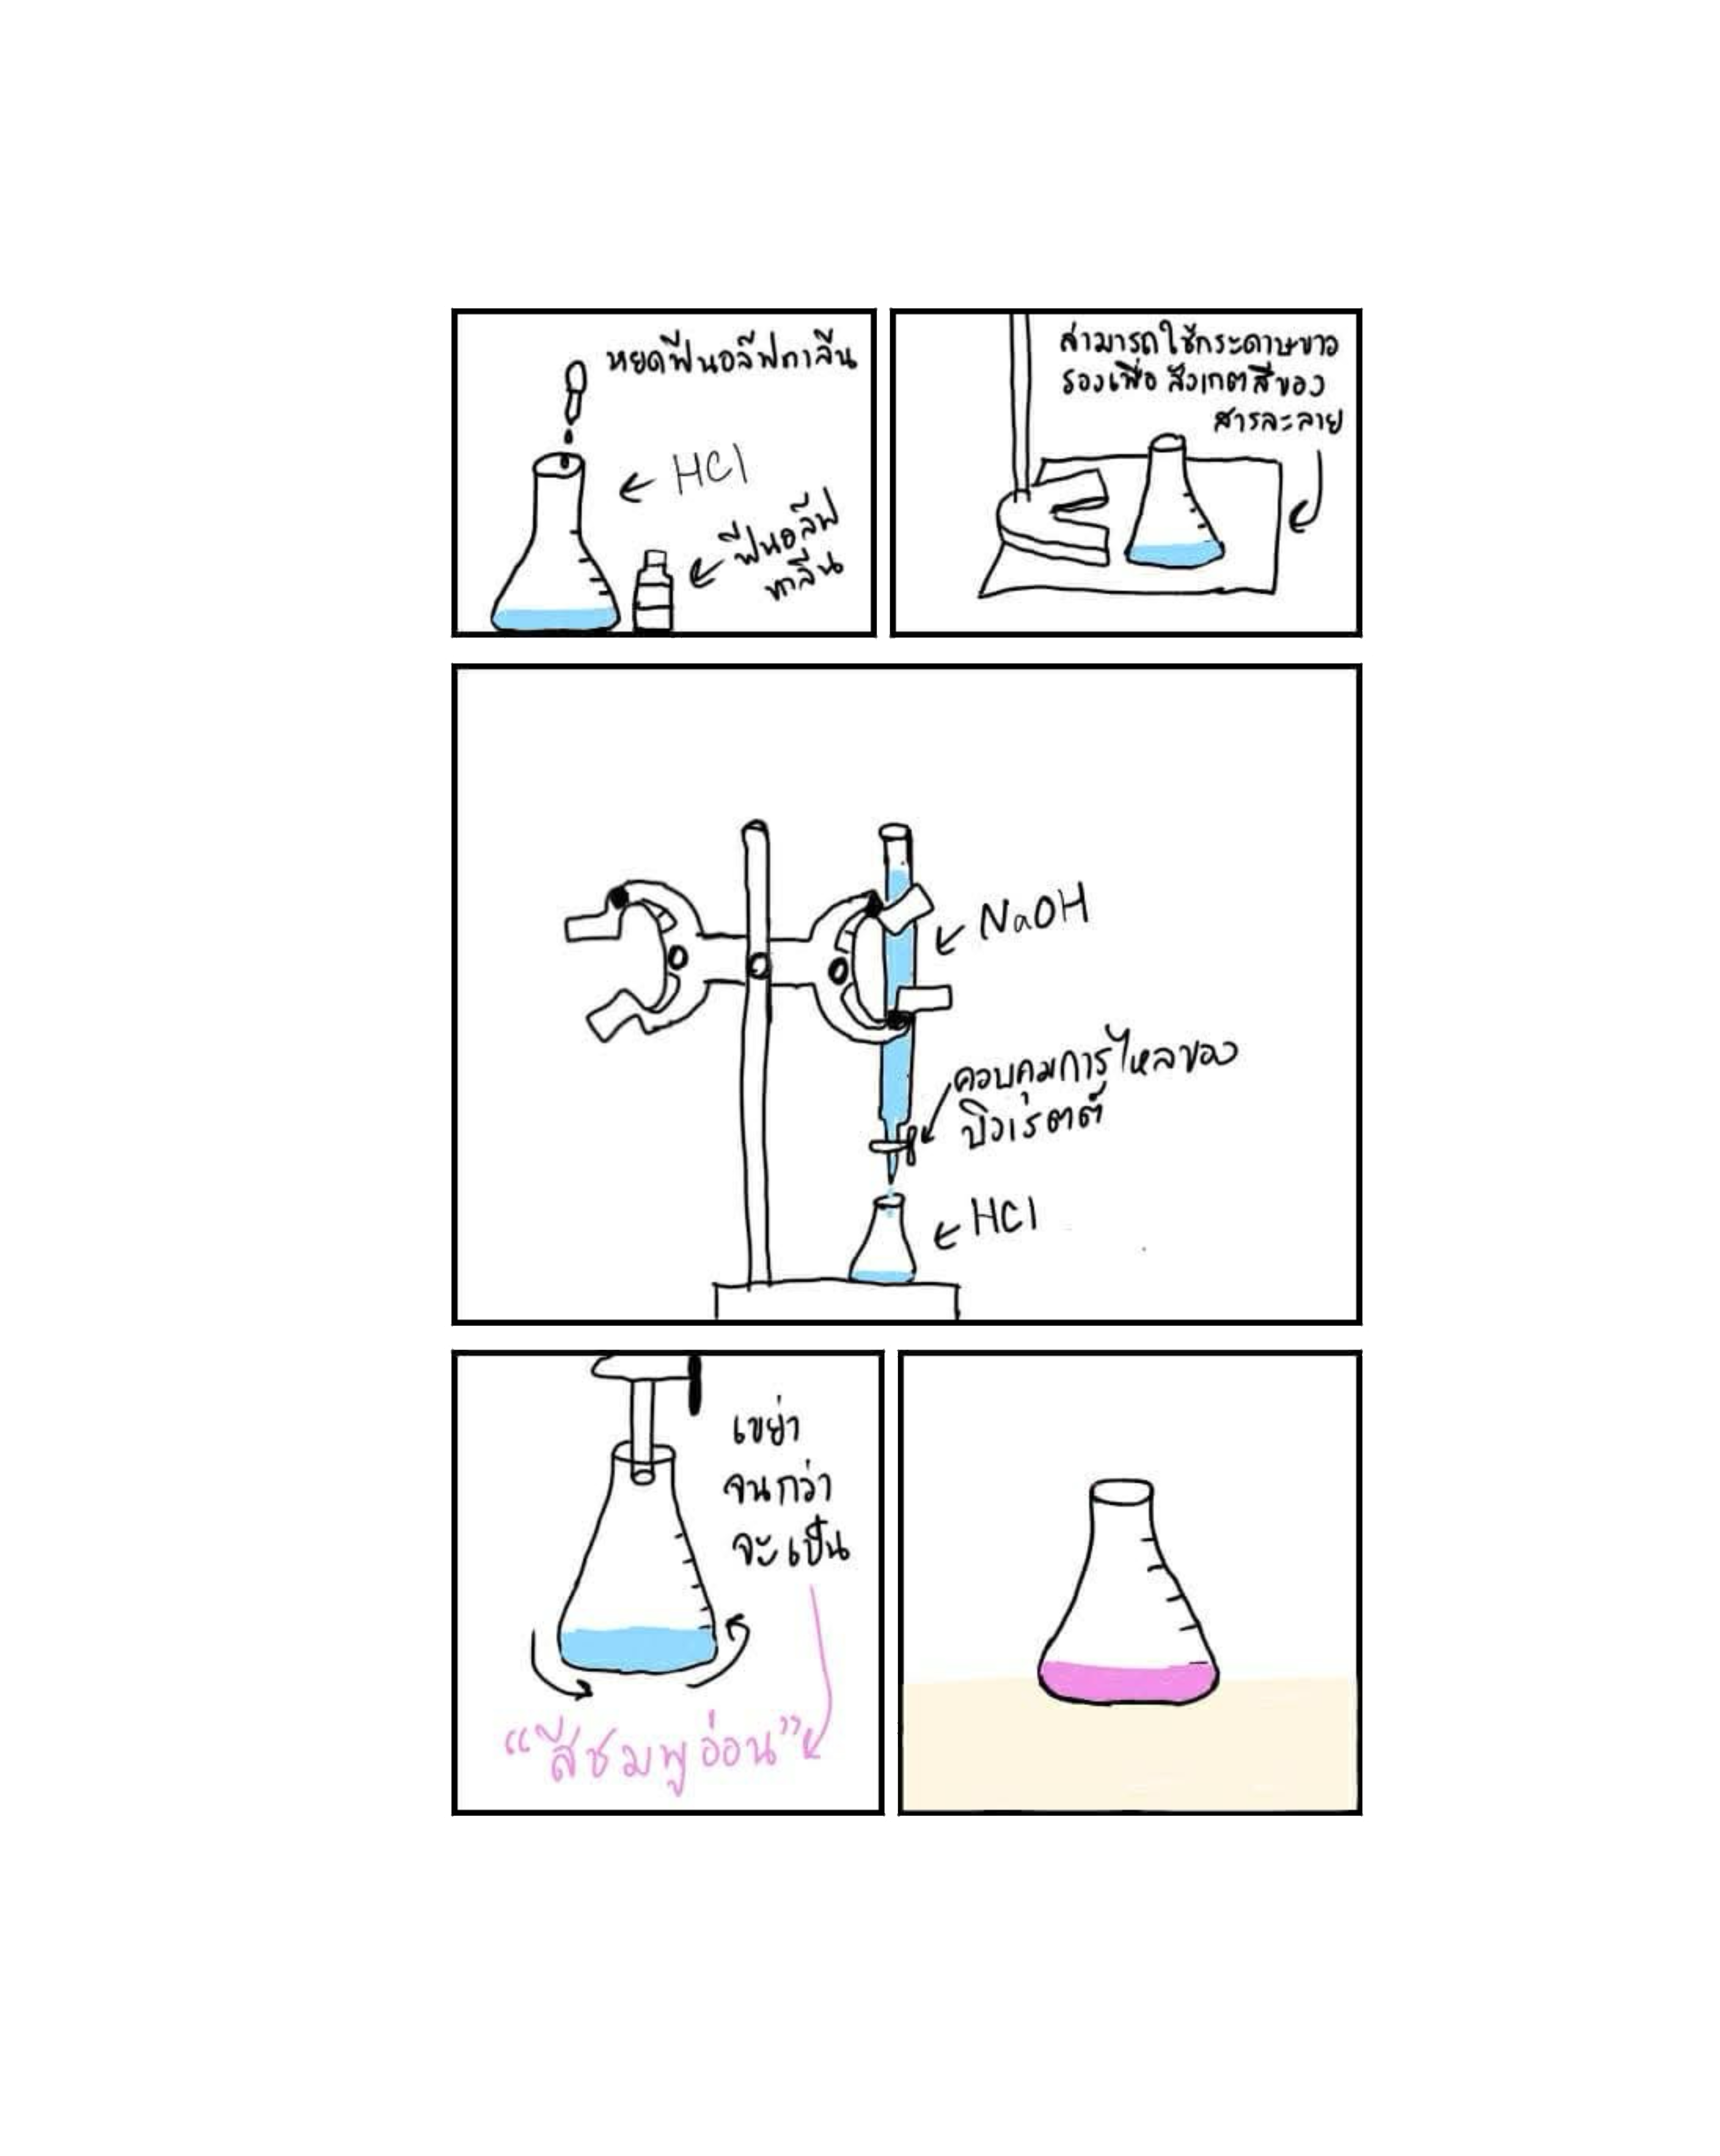 หยดฟีนอล์ฟทาลีน
HCl
ฟีนอล์ฟ
ทาลีน
สามารถใช้กระดาษขาว
รองเพื่อ สังเกตสีของ
สารละลาย
NaOH
ควบคุมการไหลของ
บิวเรตต์
HCl
เขย่า
จนกว่า
จะเป็น
“สีชมพูอ่อน”